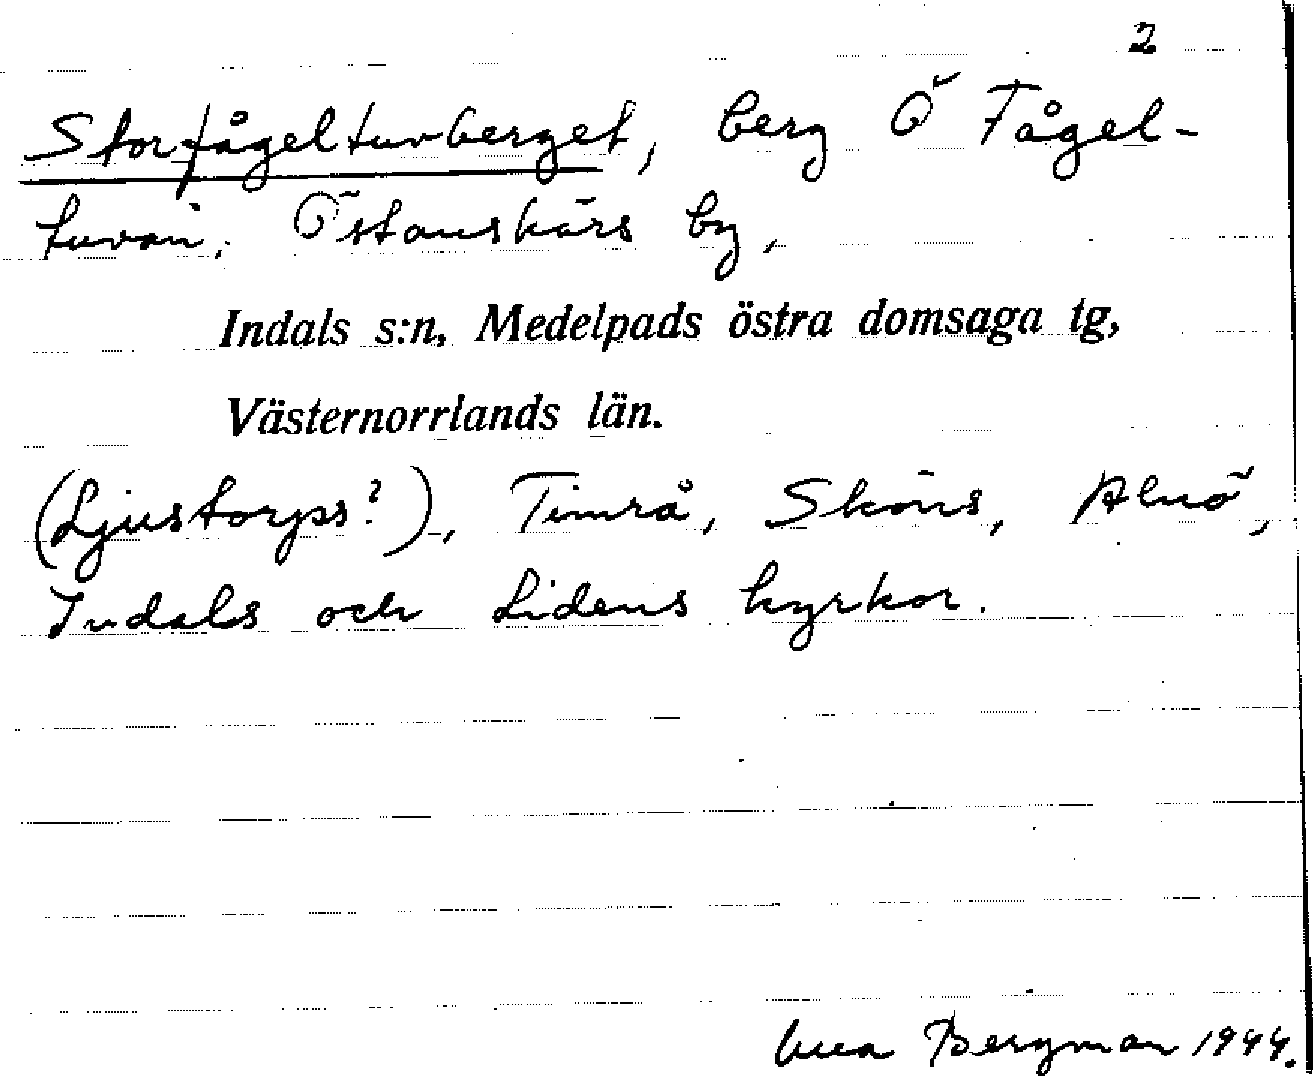 2
Storfågeltuvberget, berg Ö Fågel-
tuvan. Östanskärs by,
Indals s:n, Medelpads östra domsaga tg,
Västernorrlands län.
(Ljustorps?), Timrå, Sköns, Alnö,
Indals och Lidens kyrkor.
Bergman 1944.